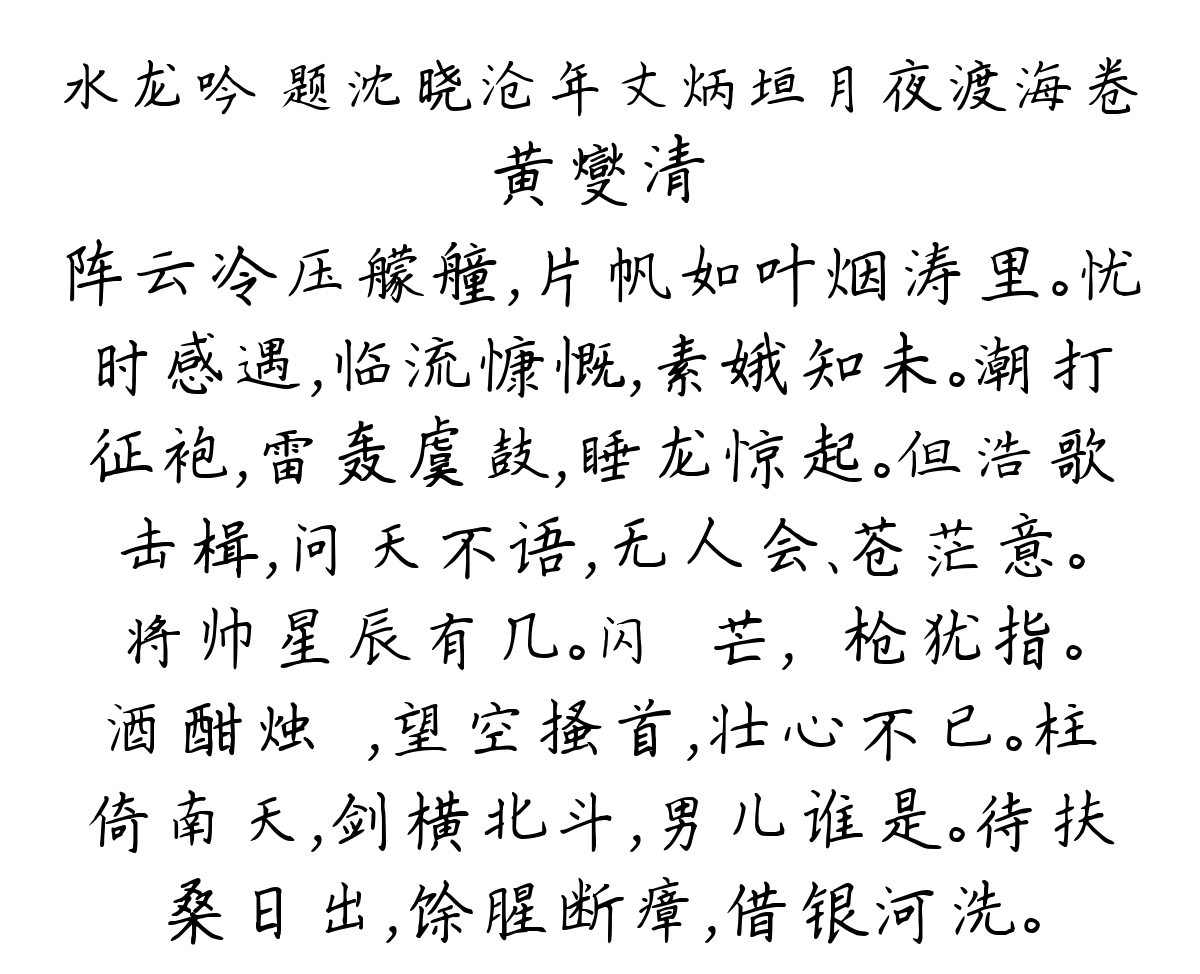 水龙吟 题沈晓沧年丈炳垣月夜渡海卷
黄燮清
阵云冷压艨艟,片帆如叶烟涛里。忧
时感遇,临流慷慨,素娥知未。潮打
征袍,雷轰虞鼓,睡龙惊起。但浩歌
击楫,问天不语,无人会、苍茫意。
将帅星辰有几。闪 芒, 枪犹指。
酒酣烛 ,望空搔首,壮心不已。柱
倚南天,剑横北斗,男儿谁是。待扶
桑日出,馀腥断瘴,借银河洗。